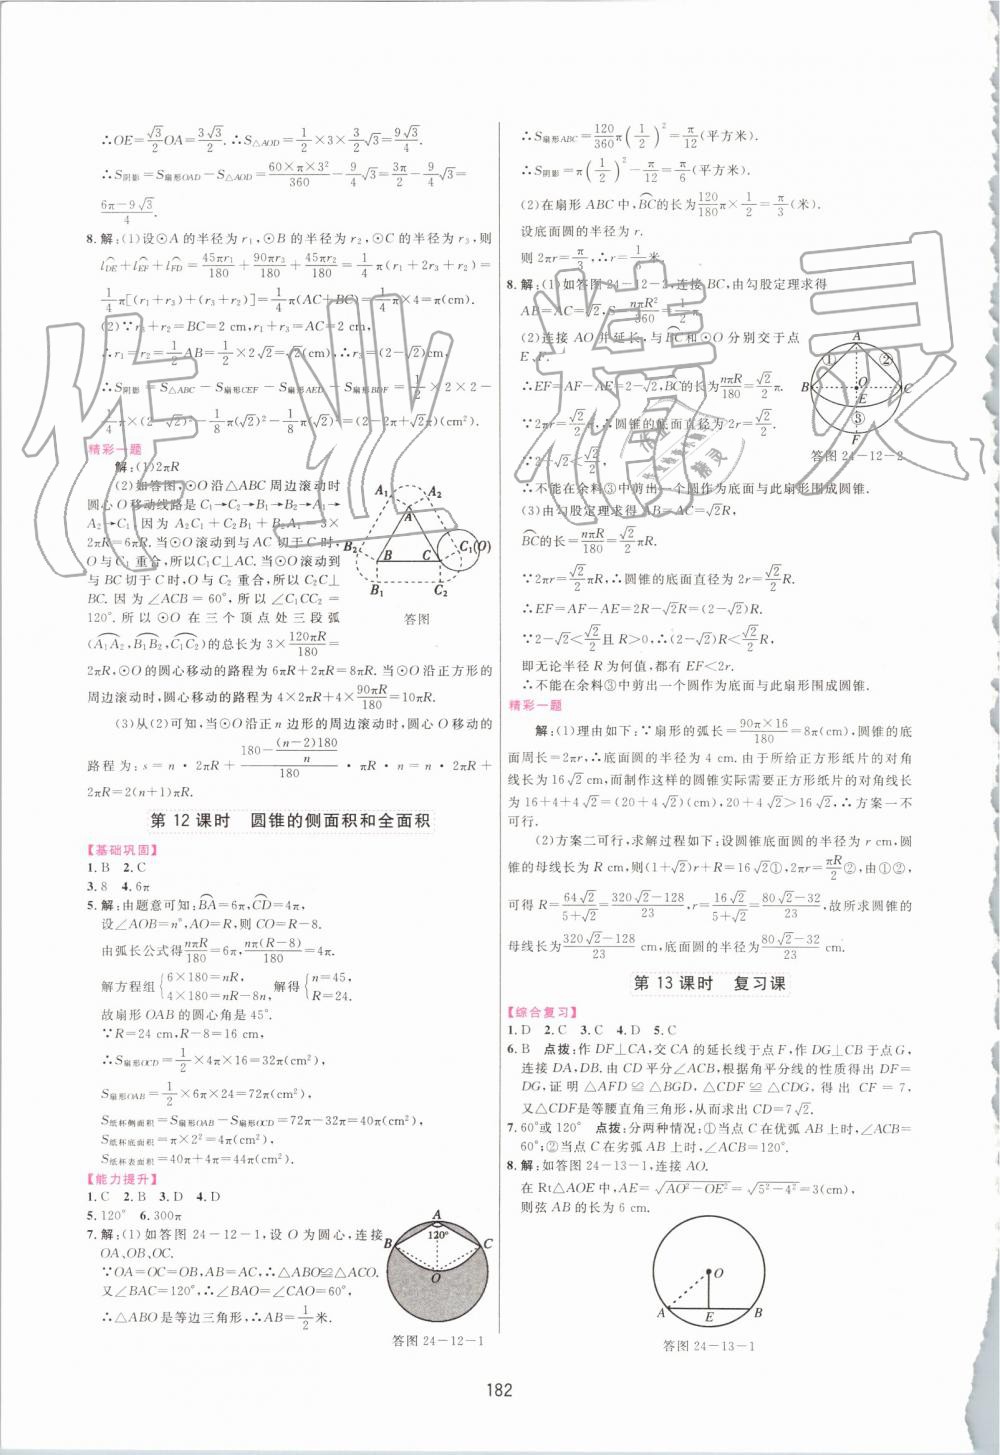 ∴OE=√3/2 OA=3√3/2.∴S△AOD=1/2×3×3/2√3=9√3/4.
∴S阴影=S扇形OAD-S△AOD=60×π×3²/360-9/4√3=3π/2-9/4√3=
6π-9√3/4.
8.解:(1)设⊙A的半径为r₁,⊙B的半径为r₂,⊙C的半径为r₃,则
l⌒DE+l⌒EF+l⌒FD=45πr₁/180+90πr₃/180+45πr₂/180=1/4π(r₁+2r₃+r₂)=
1/4π[(r₁+r₃)+(r₂+r₃)]=1/4π(AC+BC)=1/4π×4=π(cm).
(2)∵r₃+r₂=BC=2 cm,r₁+r₃=AC=2 cm,
∴r₁=r₂=1/2AB=1/2×2√2=√2(cm),∴r₃=(2-√2)(cm).
∴S阴影=S△ABC-S扇形CEF-S扇形AED-S扇形BDF=1/2×2×2-
1/4π×(2-√2)²-1/8π(√2)²-1/8π(√2)²=(2-2π+√2π)(cm²).
精彩一题
解:(1)2πR
(2)如答图,⊙O沿△ABC周边滚动时
圆心O移动线路是C₁→C₂→B₁→B₂→A₁→
A₂→C₁.因为A₂C₁+C₂B₁+B₂A₁=3×
2πR=6πR.当⊙O滚动到与AC切于C时,
O与C₁重合,所以C₁C⊥AC.当⊙O滚动到
与BC切于C时,O与C₂重合,所以C₂C⊥
BC.因为∠ACB=60°,所以∠C₁CC₂=
120°.所以⊙O在三个顶点处三段弧
(⌒A₁A₂,⌒B₁B₂,⌒C₁C₂)的总长为3×120πR/180=
A₁ A₂ A B₂ B C C₁(O) B₁ C₂
答图
2πR,⊙O的圆心移动的路程为6πR+2πR=8πR.当⊙O沿正方形的
周边滚动时,圆心移动的路程为4×2πR+4×90πR/180=10πR.
(3)从(2)可知,当⊙O沿正n边形的周边滚动时,圆心O移动的
路程为:s=n·2πR+(180-(n-2)180/n)/180·πR·n=n·
2πR+2πR=2(n+1)πR.
第12课时 圆锥的侧面积和全面积
【基础巩固】
1.B 2.C
3.8 4.6π
5.解:由题意可知:⌒BA=6π,⌒CD=4π,
设∠AOB=n°,AO=R,则CO=R-8.
由弧长公式得nπR/180=6π,nπ(R-8)/180=4π.
解方程组{6×180=nR,4×180=nR-8n,解得{n=45,R=24.
故扇形OAB的圆心角是45°.
∵R=24 cm,R-8=16 cm,
∴S扇形OCD=1/2×4π×16=32π(cm²),
S扇形OAB=1/2×6π×24=72π(cm²),
S纸杯侧面积=S扇形OAB-S扇形OCD=72π-32π=40π(cm²),
S纸杯底面积=π×2²=4π(cm²),
S纸杯表面积=40π+4π=44π(cm²).
【能力提升】
1.C 2.B 3.D 4.D
5.120° 6.300π
7.解:(1)如答图24-12-1,设O为圆心,连接
OA、OB、OC.
∵OA=OC=OB,AB=AC,∴△ABO≌△ACO.
又∠BAC=120°,∴∠BAO=∠CAO=60°,
∴△ABO是等边三角形,∴AB=1/2米.
A B C O 120°
答图24-12-1
∴S扇形ABC=120/360π(1/2)²=π/12(平方米).
∴S阴影=π(1/2)²-π/12=π/6(平方米).
(2)在扇形ABC中,⌒BC的长为120/180π×1/2=π/3(米).
设底面圆的半径为r.
则2πr=π/3,∴r=1/6米.
8.解:(1)如答图24-12-2,连接BC,由勾股定理求得
AB=AC=√2,S=nπR²/360=1/2π.
(2)连接AO并延长,与⌒BC和⊙O分别交于点
E、F.
∴EF=AF-AE=2-√2,⌒BC的长为nπR/180=√2/2π.
∵2πr=√2/2π,∴圆锥的底面直径为2r=√2/2.
∵2-√2<√2/2,
∴不能在余料③中剪出一个圆作为底面与此扇形围成圆锥.
A B C O E F ① ② ③
答图24-12-2
(3)由勾股定理求得AB=AC=√2R,
⌒BC的长=nπR/180=√2/2πR.
∵2πr=√2/2πR,∴圆锥的底面直径为2r=√2/2R.
∴EF=AF-AE=2R-√2R=(2-√2)R.
∵2-√2<√2/2且R>0,∴(2-√2)R<√2/2R,
即无论半径R为何值,都有EF<2r.
∴不能在余料③中剪出一个圆作为底面与此扇形围成圆锥.
精彩一题
解:(1)理由如下:∵扇形的弧长=90π×16/180=8π(cm),圆锥底
面周长=2πr,∴底面圆的半径为4 cm.由于所给正方形纸片的对角
线长为16√2 cm,而制作这样的圆锥实际需要正方形纸片的对角线长
为16+4+4√2=(20+4√2)(cm),20+4√2>16√2,∴方案一不
可行.
(2)方案二可行,求解过程如下:设圆锥底面圆的半径为r cm,圆
锥的母线长为R cm,则(1+√2)r+R=16√2①,2πr=πR/2②,由①②,
可得R=64√2/5+√2=320√2-128/23,r=16√2/5+√2=80√2-32/23,故所求圆锥的
母线长为320√2-128/23 cm,底面圆的半径为80√2-32/23 cm.
第13课时 复习课
【综合复习】
1.D 2.C 3.C 4.D 5.C
6.B 点拨:作DF⊥CA,交CA的延长线于点F,作DG⊥CB于点G,
连接DA,DB.由CD平分∠ACB,根据角平分线的性质得出DF=
DG,证明△AFD≌△BGD,△CDF≌△CDG,得出CF=7,
又△CDF是等腰直角三角形,从而求出CD=7√2.
7.60°或120° 点拨:分两种情况:①当点C在优弧AB上时,∠ACB=
60°;②当点C在劣弧AB上时,∠ACB=120°.
8.解:如答图24-13-1,连接AO.
在Rt△AOE中,AE=√AO²-OE²=√5²-4²=3(cm),
则弦AB的长为6 cm.
O A E B
答图24-13-1
182
作业精灵